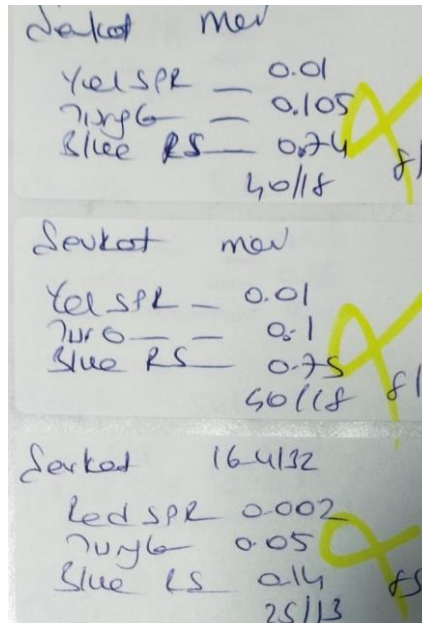 Sevkot mav
Yel SPR — 0.01
Turq G — 0.105
Blue RS — 0.74
40/18 8/
Sevkot mav
Yel SPR — 0.01
Turq G — 0.1
Blue RS — 0.75
40/18 8/
Sevkot 16-4132
Red SPR 0.002
Turq G 0.05
Blue RS 0.14
25/13 85